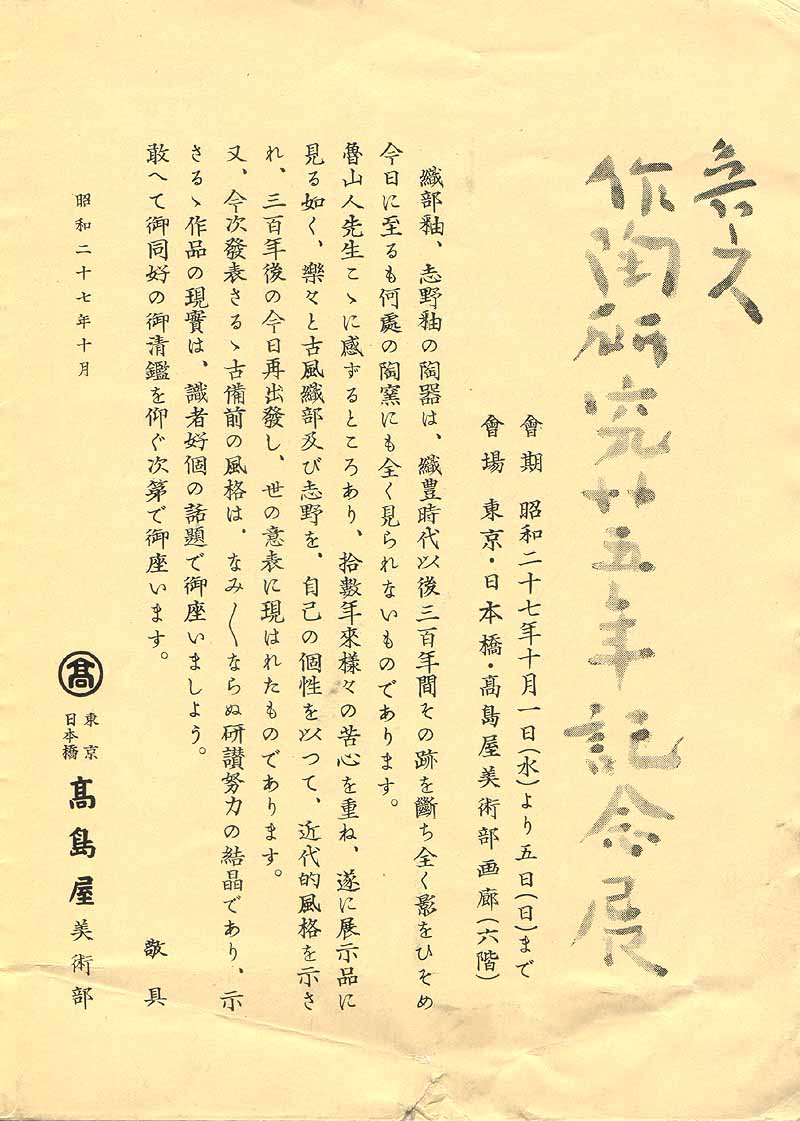 魯山人
作陶研究廿五年記念展
會期 昭和二十七年十月一日(水)より五日(日)まで
會場 東京・日本橋・髙島屋美術部画廊(六階)
織部釉、志野釉の陶器は、織豊時代以後三百年間その跡を斷ち全く影をひそめ
今日に至るも何處の陶窯にも全く見られないものであります。
魯山人先生こゝに感ずるところあり、拾數年來様々の苦心を重ね、遂に展示品に
見る如く、樂々と古風織部及び志野を、自己の個性を以つて、近代的風格を示さ
れ、三百年後の今日再出發し、世の意表に現はれたものであります。
又、今次發表さるゝ古備前の風格は、なみ〱ならぬ研讃努力の結晶であり、示
さるゝ作品の現實は、識者好個の話題で御座いましよう。
敢へて御同好の御清鑑を仰ぐ次第で御座います。
敬具
昭和二十七年十月
髙
東京
日本橋
髙島屋美術部